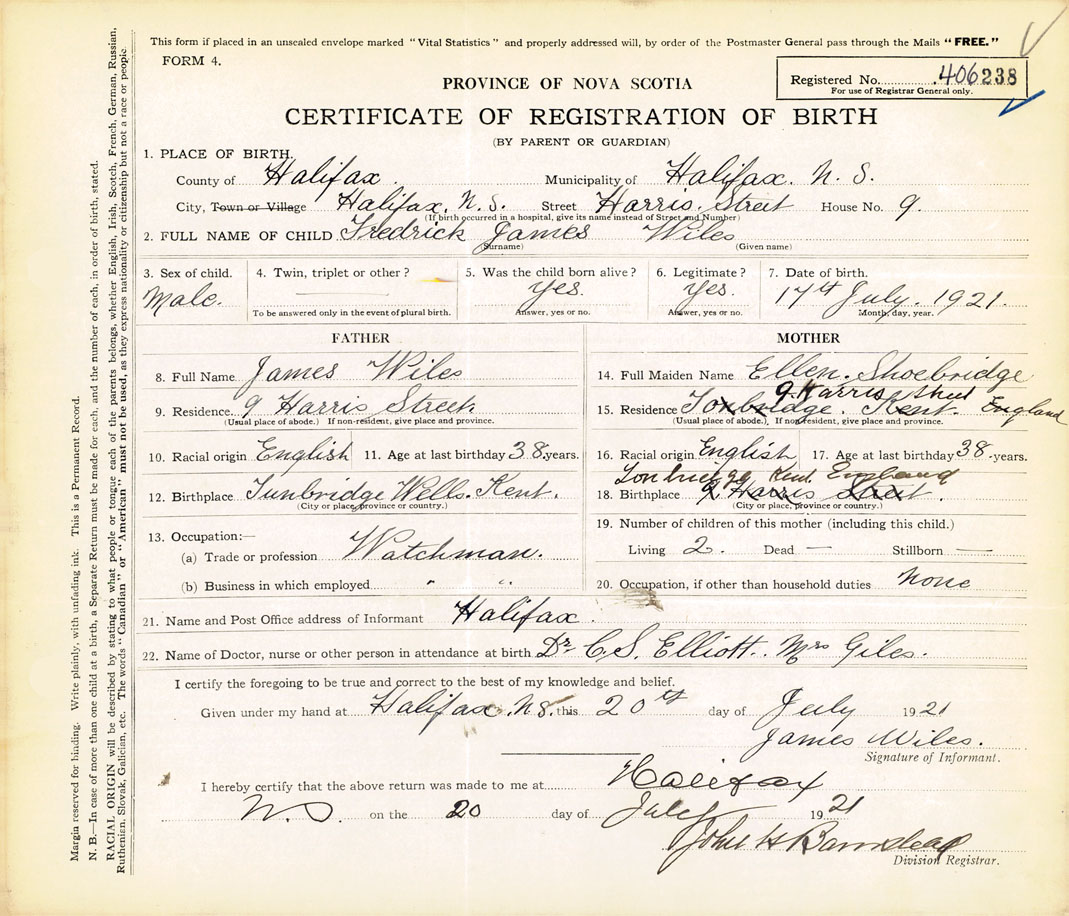 This form if placed in an unsealed envelope marked "Vital Statistics" and properly addressed will, by order of the Postmaster General pass through the Mails "FREE."
FORM 4.
Registered No. 406238
For use of Registrar General only.
PROVINCE OF NOVA SCOTIA
CERTIFICATE OF REGISTRATION OF BIRTH
(BY PARENT OR GUARDIAN)
1. PLACE OF BIRTH.
County of Halifax. Municipality of Halifax. N. S.
City, Town or Village Halifax, N. S. Street Harris. Street House No. 9.
(If birth occurred in a hospital, give its name instead of Street and Number)
2. FULL NAME OF CHILD Fredrick James Wiles
(Surname) (Given name)
3. Sex of child. 4. Twin, triplet or other? 5. Was the child born alive? 6. Legitimate? 7. Date of birth.
Male. — Yes. Yes. 17th July. 1921.
To be answered only in the event of plural birth. Answer, yes or no. Answer, yes or no. Month, day, year.
FATHER
8. Full Name James Wiles
9. Residence 9 Harris Street
(Usual place of abode.) If non-resident, give place and province.
10. Racial origin English 11. Age at last birthday 38. years.
12. Birthplace Tunbridge Wells. Kent.
(City or place, province or country.)
13. Occupation:—
(a) Trade or profession Watchman.
(b) Business in which employed " "
MOTHER
14. Full Maiden Name Ellen. Shoebridge
9 Harris Street
15. Residence Tonbridge. Kent. England
(Usual place of abode.) If non-resident, give place and province.
16. Racial origin English 17. Age at last birthday 38 -years.
Tonbridge Kent. England
18. Birthplace 9. Harris Street.
(City or place, province or country.)
19. Number of children of this mother (including this child.)
Living 2. Dead — Stillborn —
20. Occupation, if other than household duties none
21. Name and Post Office address of Informant Halifax.
22. Name of Doctor, nurse or other person in attendance at birth Dr C. S. Elliott. Mrs Giles.
I certify the foregoing to be true and correct to the best of my knowledge and belief.
Given under my hand at Halifax. N.S. this 20th day of July 1921
James Wiles.
Signature of Informant.
I hereby certify that the above return was made to me at Halifax
N. S. on the 20 day of July 1921
John H Barnstead
Division Registrar.
Margin reserved for binding. Write plainly, with unfading ink. This is a Permanent Record.
N. B.—In case of more than one child at a birth, a Separate Return must be made for each, and the number of each, in order of birth, stated.
RACIAL ORIGIN will be described by stating to what people or tongue each of the parents belongs, whether English, Irish, Scotch, French, German, Russian,
Ruthenian, Slovak, Galician, etc. The words "Canadian" or "American" must not be used, as they express nationality or citizenship but not a race or people.